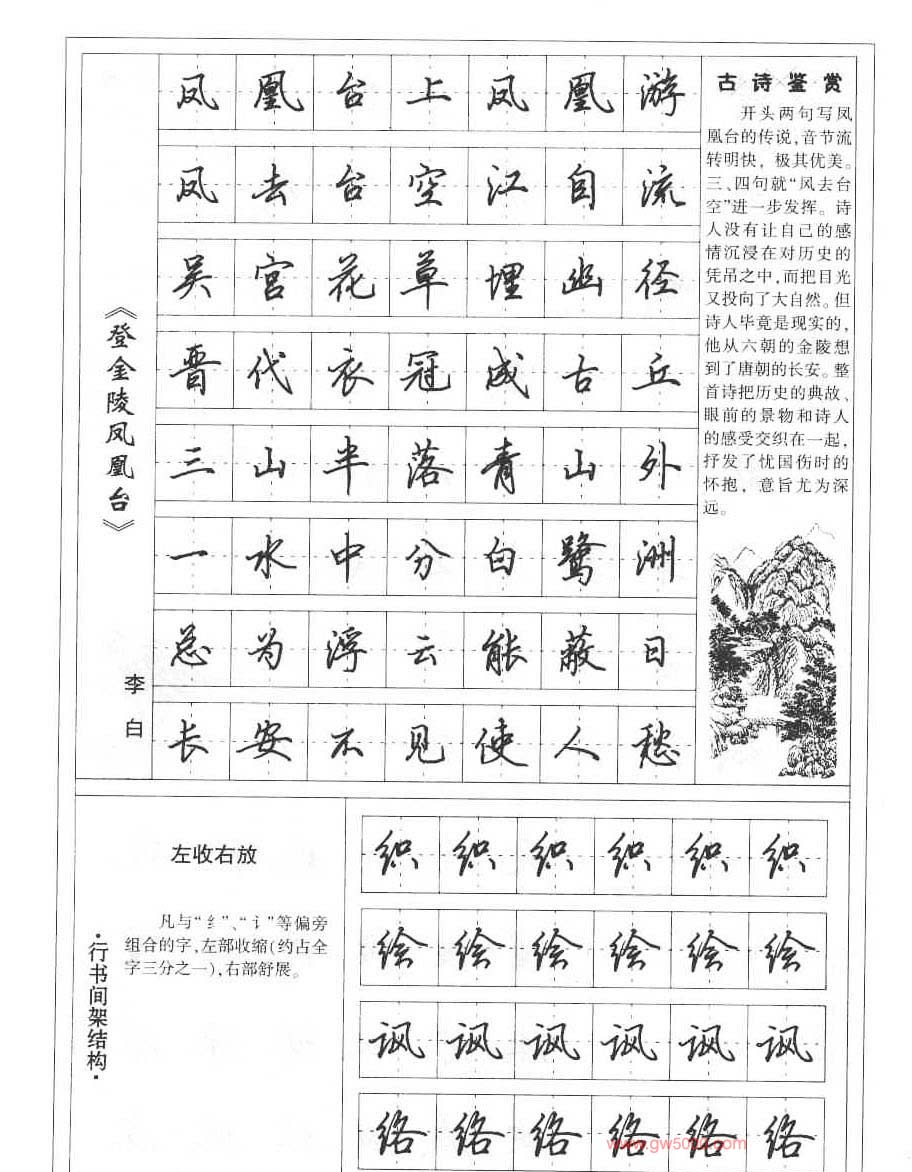 《登金陵凤凰台》
李白
凤凰台上凤凰游
凤去台空江自流
吴宫花草埋幽径
晋代衣冠成古丘
三山半落青山外
一水中分白鹭洲
总为浮云能蔽日
长安不见使人愁
古诗鉴赏
开头两句写凤
凰台的传说,音节流
转明快,极其优美。
三、四句就“凤去台
空”进一步发挥。诗
人没有让自己的感
情沉浸在对历史的
凭吊之中,而把目光
又投向了大自然。但
诗人毕竟是现实的,
他从六朝的金陵想
到了唐朝的长安。整
首诗把历史的典故、
眼前的景物和诗人
的感受交织在一起,
抒发了忧国伤时的
怀抱,意旨尤为深
远。
·行书间架结构·
左收右放
凡与“纟”、“讠”等偏旁
组合的字,左部收缩(约占全
字三分之一),右部舒展。
织织织织织织
绘绘绘绘绘绘
讽讽讽讽讽讽
络络络络络络